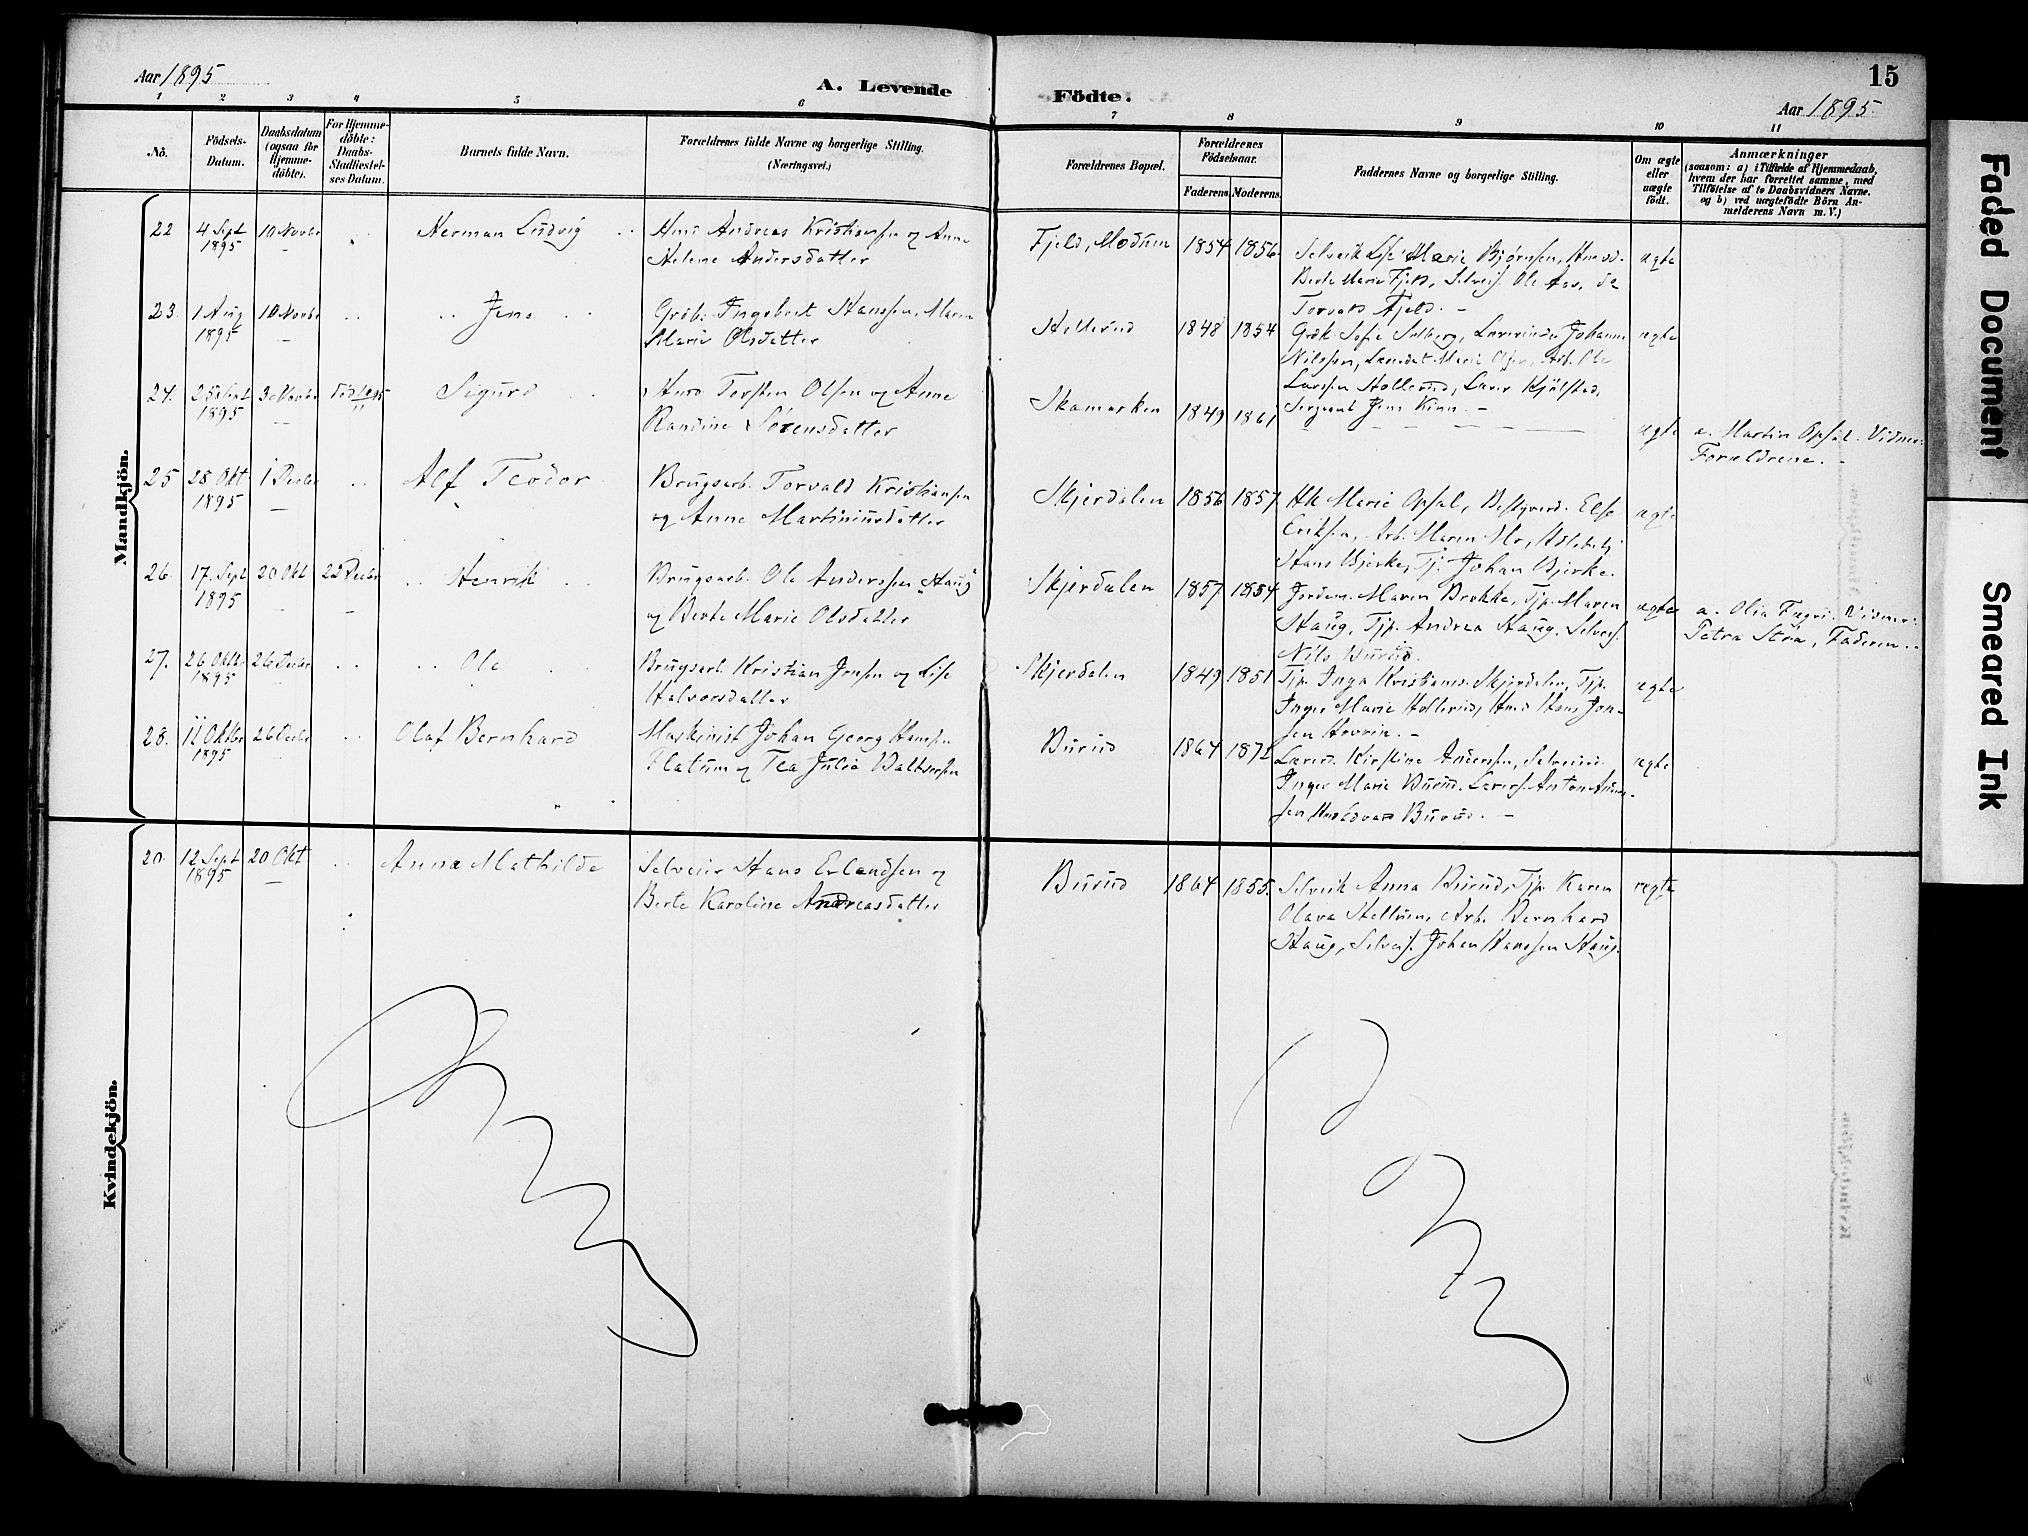 Aar 1895
A. Levende
Födte.
15
Aar 1895
1 2 3 4 5 6 7 8 9 10 11
No.
Födsels-
Datum.
Daabsdatum
(ogsaa for
Hjemme-
döbte).
For Hjemme-
döbte:
Daabs-
Stadfæstel-
ses Datum.
Barnets fulde Navn.
Forældrenes fulde Navne og borgerlige Stilling.
(Næringsvei.)
Forældrenes Bopæl.
Forældrenes
Födselsaar.
Faderens. Moderens.
Faddernes Navne og borgerlige Stilling.
Om ægte
eller
uægte
födt.
Anmærkninger
(saasom: a) i Tilfælde af Hjemmedaab,
hvem der har forrettet samme, med
Tilföielse af to Daabsvidners Navne.
og b) ved uægtefödte Börn An-
melderens Navn m. V.)
Mandkjön.
22 4 Sept 10 Novbr Herman Ludvig Hmd Andreas Kristiansen og Anne Fjeld, Modum 1854 1856 Selveik Lise Marie Bjørnsen, ægte
1895 Helene Andersdatter Berte Marie Fjeld, Selvej. Ole Aas, do
Torvald Fjeld. –
23. 1 Aug 10 Novbr Jens Grøb: Ingebret Hanssen, Maren Hollerud 1848 1854 Grøbk Sofie Solberg, Lærerinde Johanne ægte
1895 Marie Olsdatter Nilssen, Marie Olsen, Arb. Ole
Larssen Hollerud, Lærer Kjølstad,
Sergeant Jens Kinn. –
24. 25 Sept 3 Novbr Sigurd Hmd Torsten Olsen og Anne Skamarken 1849 1861 ægte a. Martin Opsal. Vidner:
1895 Randine Sørensdatter Forældrene. –
25 28 Okt 1 Decbr Alf Teodor Brugsarb. Torvald Kristiansen Skjerdalen 1856 1857 Hk Marie Opsal, Bestyrerd. Else ægte
1895 og Anne Martiniusdatter Eriksen, Arb. Maren Mo,
Hans Bjerke, Tj. Johan Bjerke.
26. 17. Sept 20 Okt 22 Decbr Henrik Brugsarb. Ole Anderssen "Haug" Skjerdalen 1857 1854 Jordem. Maren Brekke, Tjp. Maren ægte a. Olia Vidner:
1895 og Berte Marie Olsdatter Haug, Tjp. Andrea Haug, Selvej. Petra Strø, Faderen.
Nils Burud.
27. 26 Oktbr 26 Decbr Ole Brugsarb. Kristian Jensen og Lise Skjerdalen 1849 1851 Tjp. Inga Kristians. Skjerdalen, Tjp. ægte
1895 Halvorsdatter Inger Marie Hollerud, Hmd Hans Jon-
sen Hovrin. –
28. 11 Oktbr 26 Decbr Olaf Bernhard Maskinist Johan Georg Hansen Burud 1864 1872 Lærerd. Kirstine Anderssen, Selveierd. ægte
1895 Flatum og Tea Julie Baltsersen Inger Marie Burud. Lærers. Anton Anders-
sen Edvard Burud. –
Kvindekjön.
20. 12 Sept 20 Okt Anna Mathilde Selveier Hans Erlandsen og Burud 1864 1855. Selveik Anna Burud, Tjp. Karen ægte
1895 Berte Karoline Andreasdatter Olava Hellum, Arb. Bernhard
Haug, Selvejs. Johan Hanssen Haug.
Faded Document
Smeared Ink